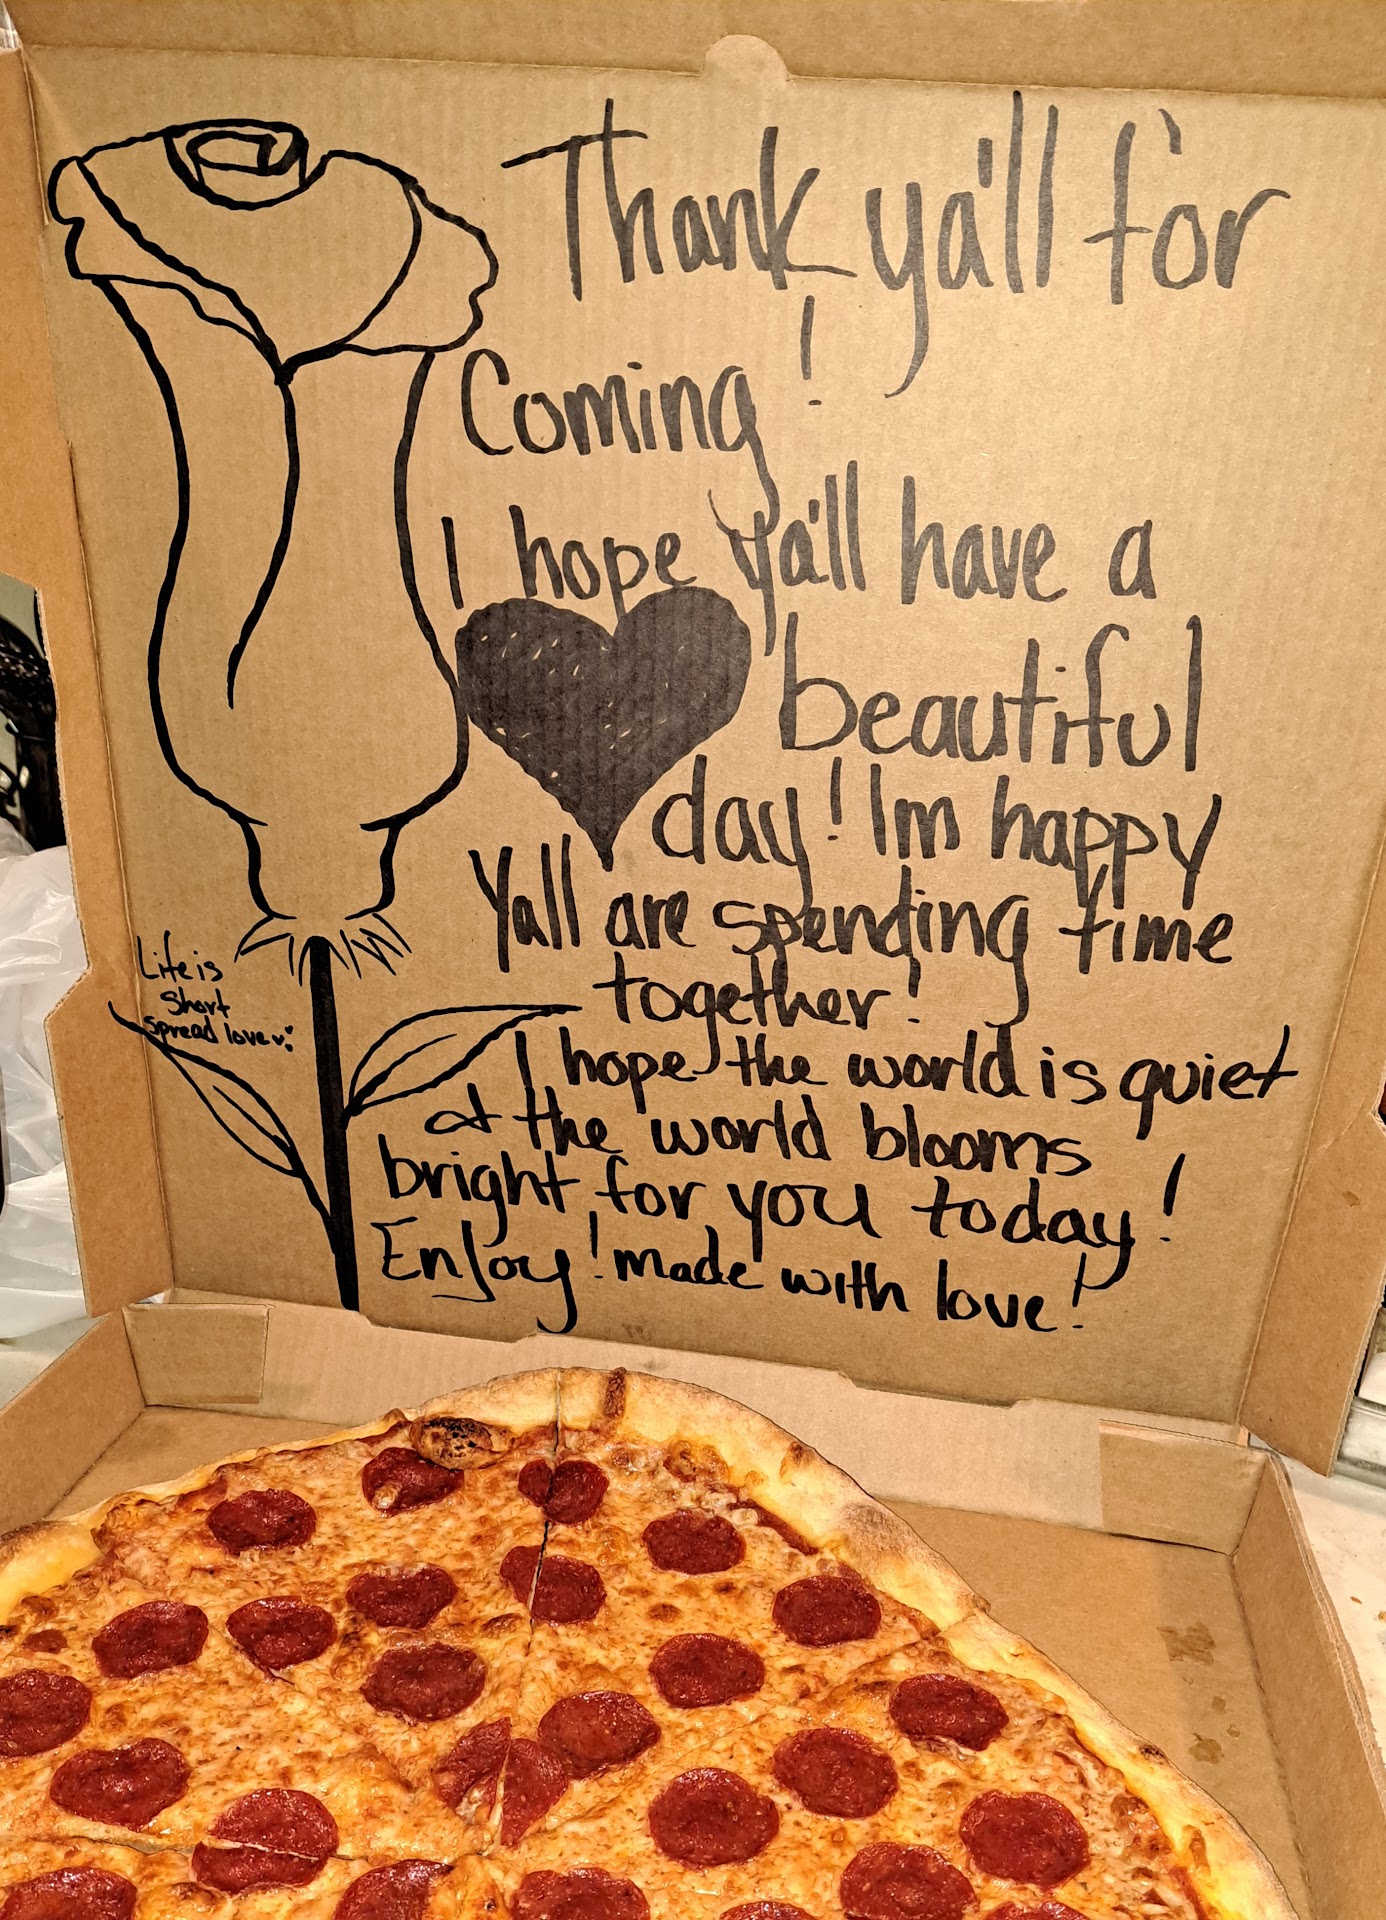 Thank ya'll for
Coming!
I hope ya'll have a
beautiful
day! Im happy
Yall are spending time
together!
I hope the world is quiet
at the world blooms
bright for you today!
Enjoy! made with love!
Life is
Short
spread love